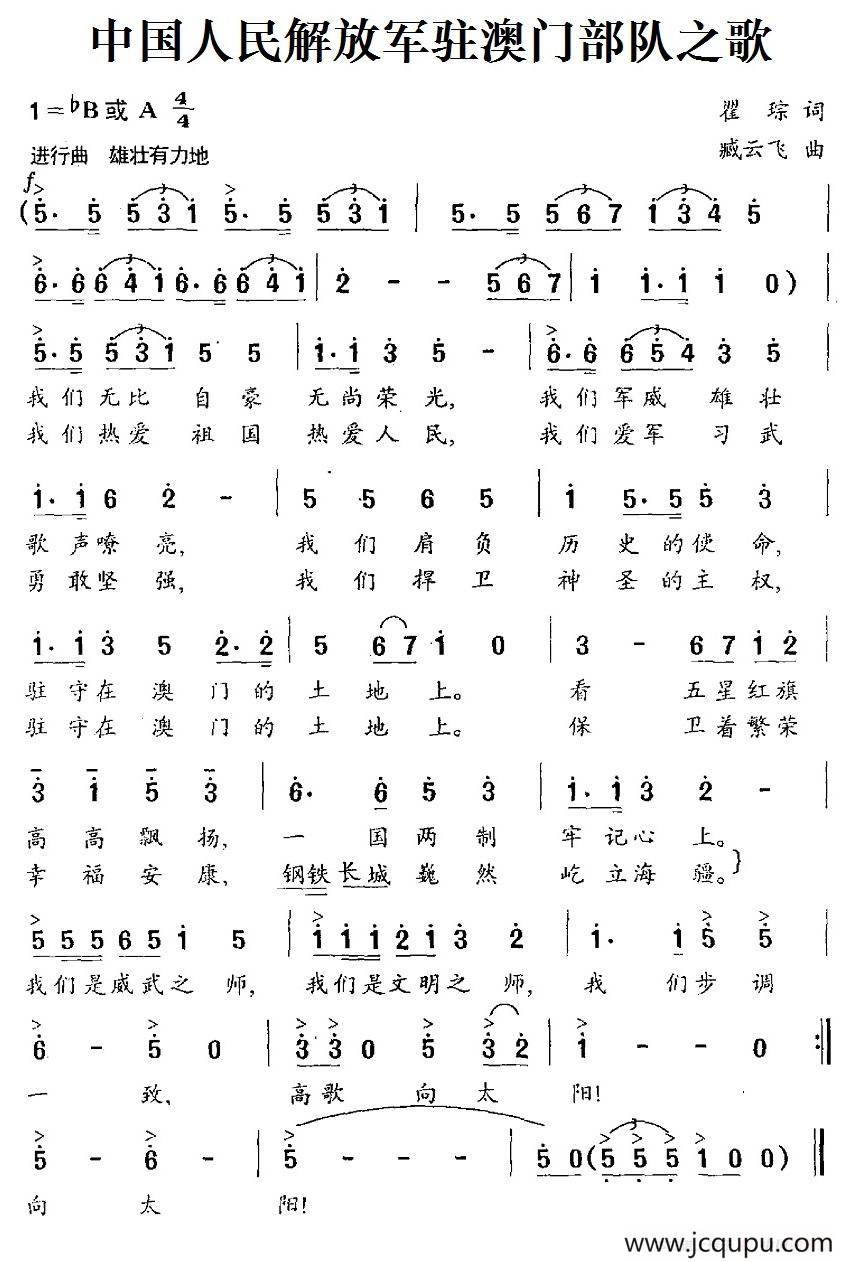 中国人民解放军驻澳门部队之歌
1=♭B或 A 4/4
瞿 琮 词
进行曲 雄壮有力地
臧云飞 曲
f
(5· 5 5 3 1 5· 5 5 3 1 | 5· 5 5 6 7 1 3 4 5 |
6· 6 6 4 1 6· 6 6 4 1 | 2 - - 5 6 7 | 1 1· 1 1 0) |
5· 5 5 3 1 5 5 | 1· 1 3 5 - | 6· 6 6 5 4 3 5 |
我们无比 自豪 无尚荣光, 我们军威 雄壮
我们热爱 祖国 热爱人民, 我们爱军 习武
1· 1 6 2 - | 5 5 6 5 | 1 5· 5 5 3 |
歌声嘹亮, 我们肩负 历史的使命,
勇敢坚强, 我们捍卫 神圣的主权,
1· 1 3 5 2· 2 | 5 6 7 1 0 | 3 - 6 7 1 2 |
驻守在澳门的 土地上。 看 五星红旗
驻守在澳门的 土地上。 保 卫着繁荣
3 1 5 3 | 6· 6 5 3 | 1· 1 3 2 - |
高高飘扬, 一 国两制 牢记心上。
幸福安康, 钢铁长城巍然 屹立海疆。}
5 5 5 6 5 1 5 | 1 1 1 2 1 3 2 | 1· 1 5 5 |
我们是威武之师, 我们是文明之师, 我 们步调
6 - 5 0 | 3 3 0 5 3 2 | 1 - - 0 :‖
一 致, 高歌 向太 阳!
5 - 6 - | 5 - - - | 5 0 (5 5 5 1 0 0) ‖
向 太 阳!
www.jcqupu.com